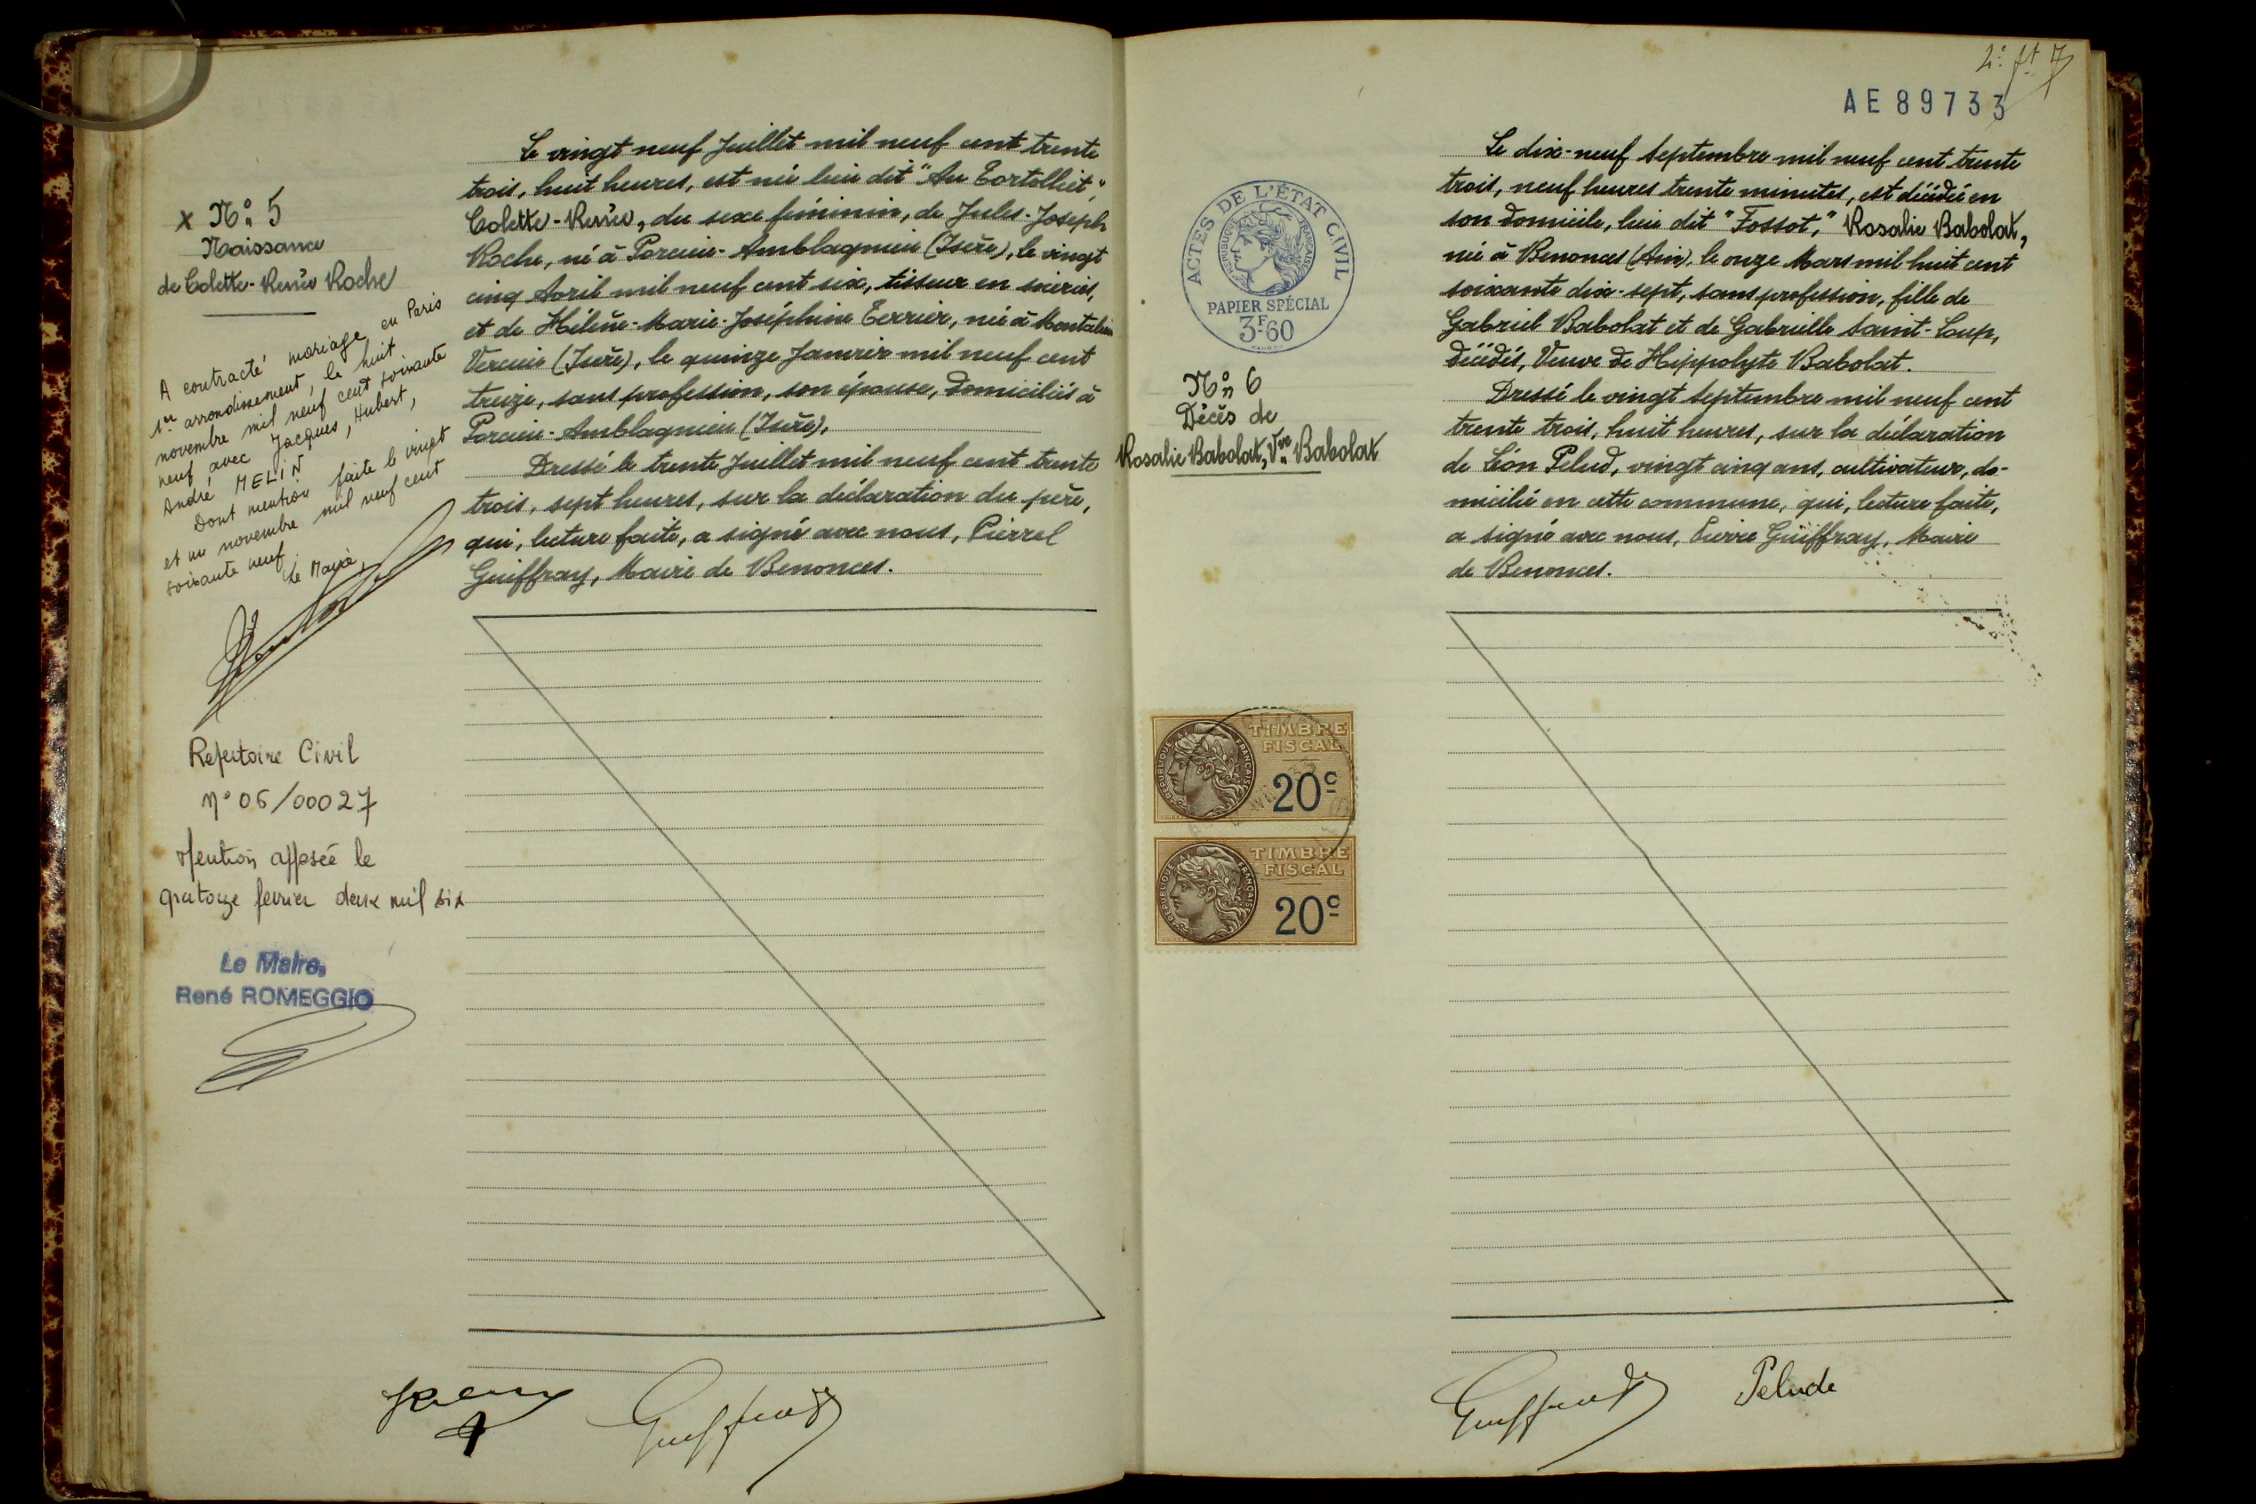 x N° 5
Naissance
de Colette-Renée Roche
A contracté mariage en Paris
1er arrondissement, le huit
novembre mil neuf cent soixante
neuf avec Jacques, Hubert,
André MELIN
Dont mention faite le vingt
et un novembre mil neuf cent
soixante neuf.
Le Maire,
Repertoire Civil
n° 06/00027
Mention apposée le
quatorze fevrier deux mil six
Le Maire,
René ROMEGGIO
Le vingt neuf Juillet mil neuf cent trente
trois, huit heures, est née lieu dit "Au Tortolliet,"
Colette-Renée, du sexe féminin, de Jules-Joseph
Roche, né à Porcieu-Amblagnieu (Isère), le vingt
cinq Avril mil neuf cent six, tisseur en soieries,
et de Hélène-Marie-Joséphine Terrier, née à Montalieu
Vercieu (Isère), le quinze Janvier mil neuf cent
treize, sans profession, son épouse, domiciliés à
Porcieu-Amblagnieu (Isère),
Dressé le trente Juillet mil neuf cent trente
trois, sept heures, sur la déclaration du père,
qui, lecture faite, a signé avec nous, Pierrel
Guiffray, Maire de Benonces.
Guiffray
AE89733
ACTES DE L'ÉTAT CIVIL
RÉPUBLIQUE FRANÇAISE
PAPIER SPÉCIAL
3F60
N° 6
Décès de
Rosalie Babolat, Vve Babolat
TIMBRE
FISCAL
20c
RÉPUBLIQUE FRANÇAISE
TIMBRE
FISCAL
20c
RÉPUBLIQUE FRANÇAISE
Le dix-neuf Septembre mil neuf cent trente
trois, neuf heures trente minutes, est décédée en
son domicile, lieu dit "Fossot," Rosalie Babolat,
née à Benonces (Ain), le onze Mars mil huit cent
soixante dix-sept, sans profession, fille de
Gabriel Babolat et de Gabrielle Saint-Loup,
décédés, Veuve de Hippolyte Babolat.
Dressé le vingt Septembre mil neuf cent
trente trois, huit heures, sur la déclaration
de Léon Pelud, vingt cinq ans, cultivateur, do-
micilié en cette commune, qui, lecture faite,
a signé avec nous, Pierre Guiffray, Maire
de Benonces.
Guiffray
Pelude